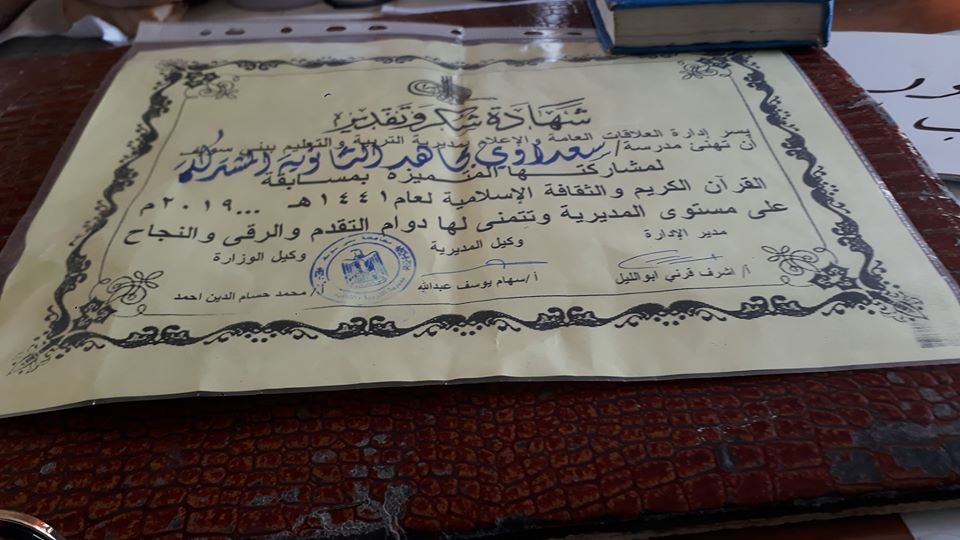 شهادة شكر وتقدير
يسر إدارة العلاقات العامة والإعلام بمديرية التربية والتعليم ببنى سويف
أن تهنئ مدرسة / سعداوي مجاهد الثانوية المشتركة
لمشاركتها المتميزة بمسابقة
القرآن الكريم والثقافة الإسلامية لعام ١٤٤١ هـ ... ٢٠١٩ م
على مستوى المديرية وتتمنى لها دوام التقدم والرقى والنجاح
مدير الإدارة
وكيل المديرية
وكيل الوزارة
أ/ اشرف قرني ابوالليل
أ /سهام يوسف عبدالله
/ محمد حسام الدين احمد